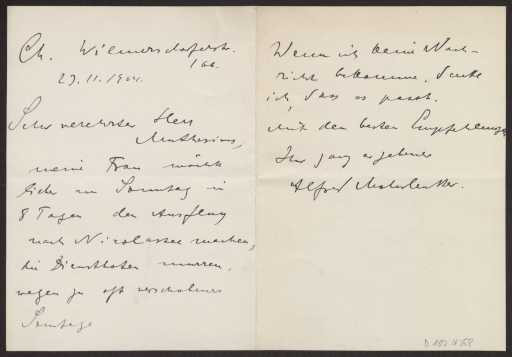 Ch. Wilmersdorferstr.
166.
29.11.1904.
Sehr verehrter Herr
Muthesius,
meine Frau möchte
lieber am Sonntag in
8 Tagen den Ausflug
nach Nicolassee machen,
die Dienstboten murren,
wegen zu oft verschobener
Sonntage
Wenn ich keine Nach-
richt bekomme, denke
ich, dass es passt.
Mit den besten Empfehlungen
Ihr ganz ergebener
Alfred
D 102 II 68